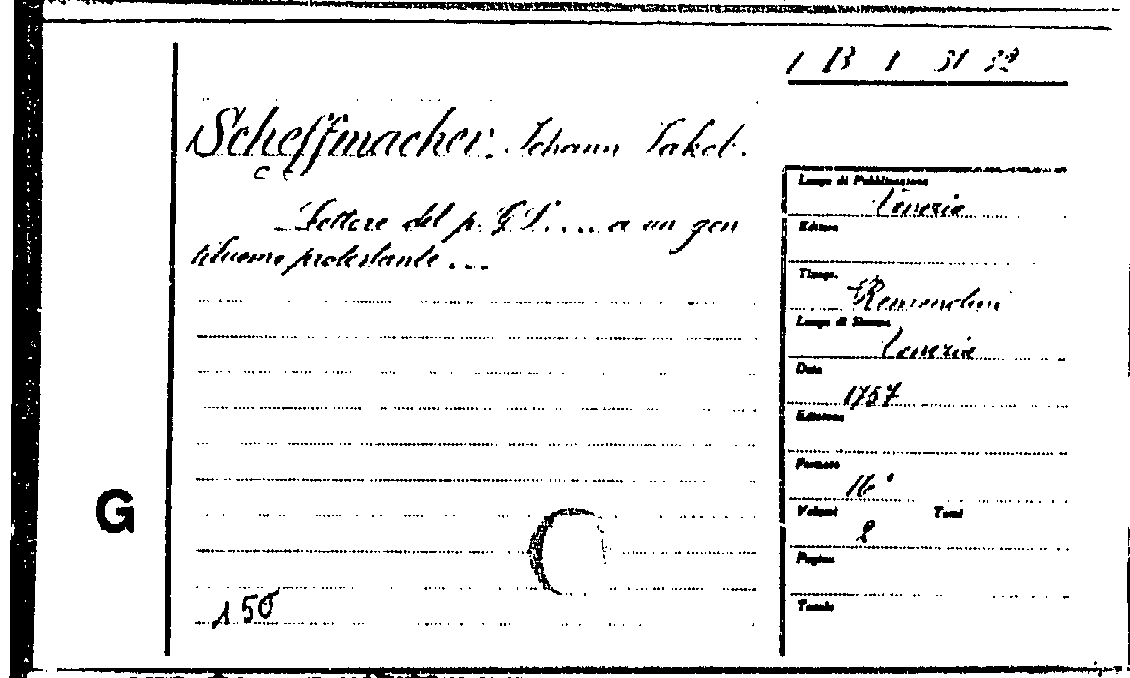 1 B 1 31 32
Scheffmacher, Johann Jakob.
Lettere del p. G. S. .... a un gen
tiluomo protestante ...
Luogo di Pubblicazione
Venezia
Editore
Tipogr.
Remondini
Luogo di Stampa
Venezia
Data
1757
Edizione
Formato
16°
Volumi Tomi
2
Pagine
Tavole
G
150